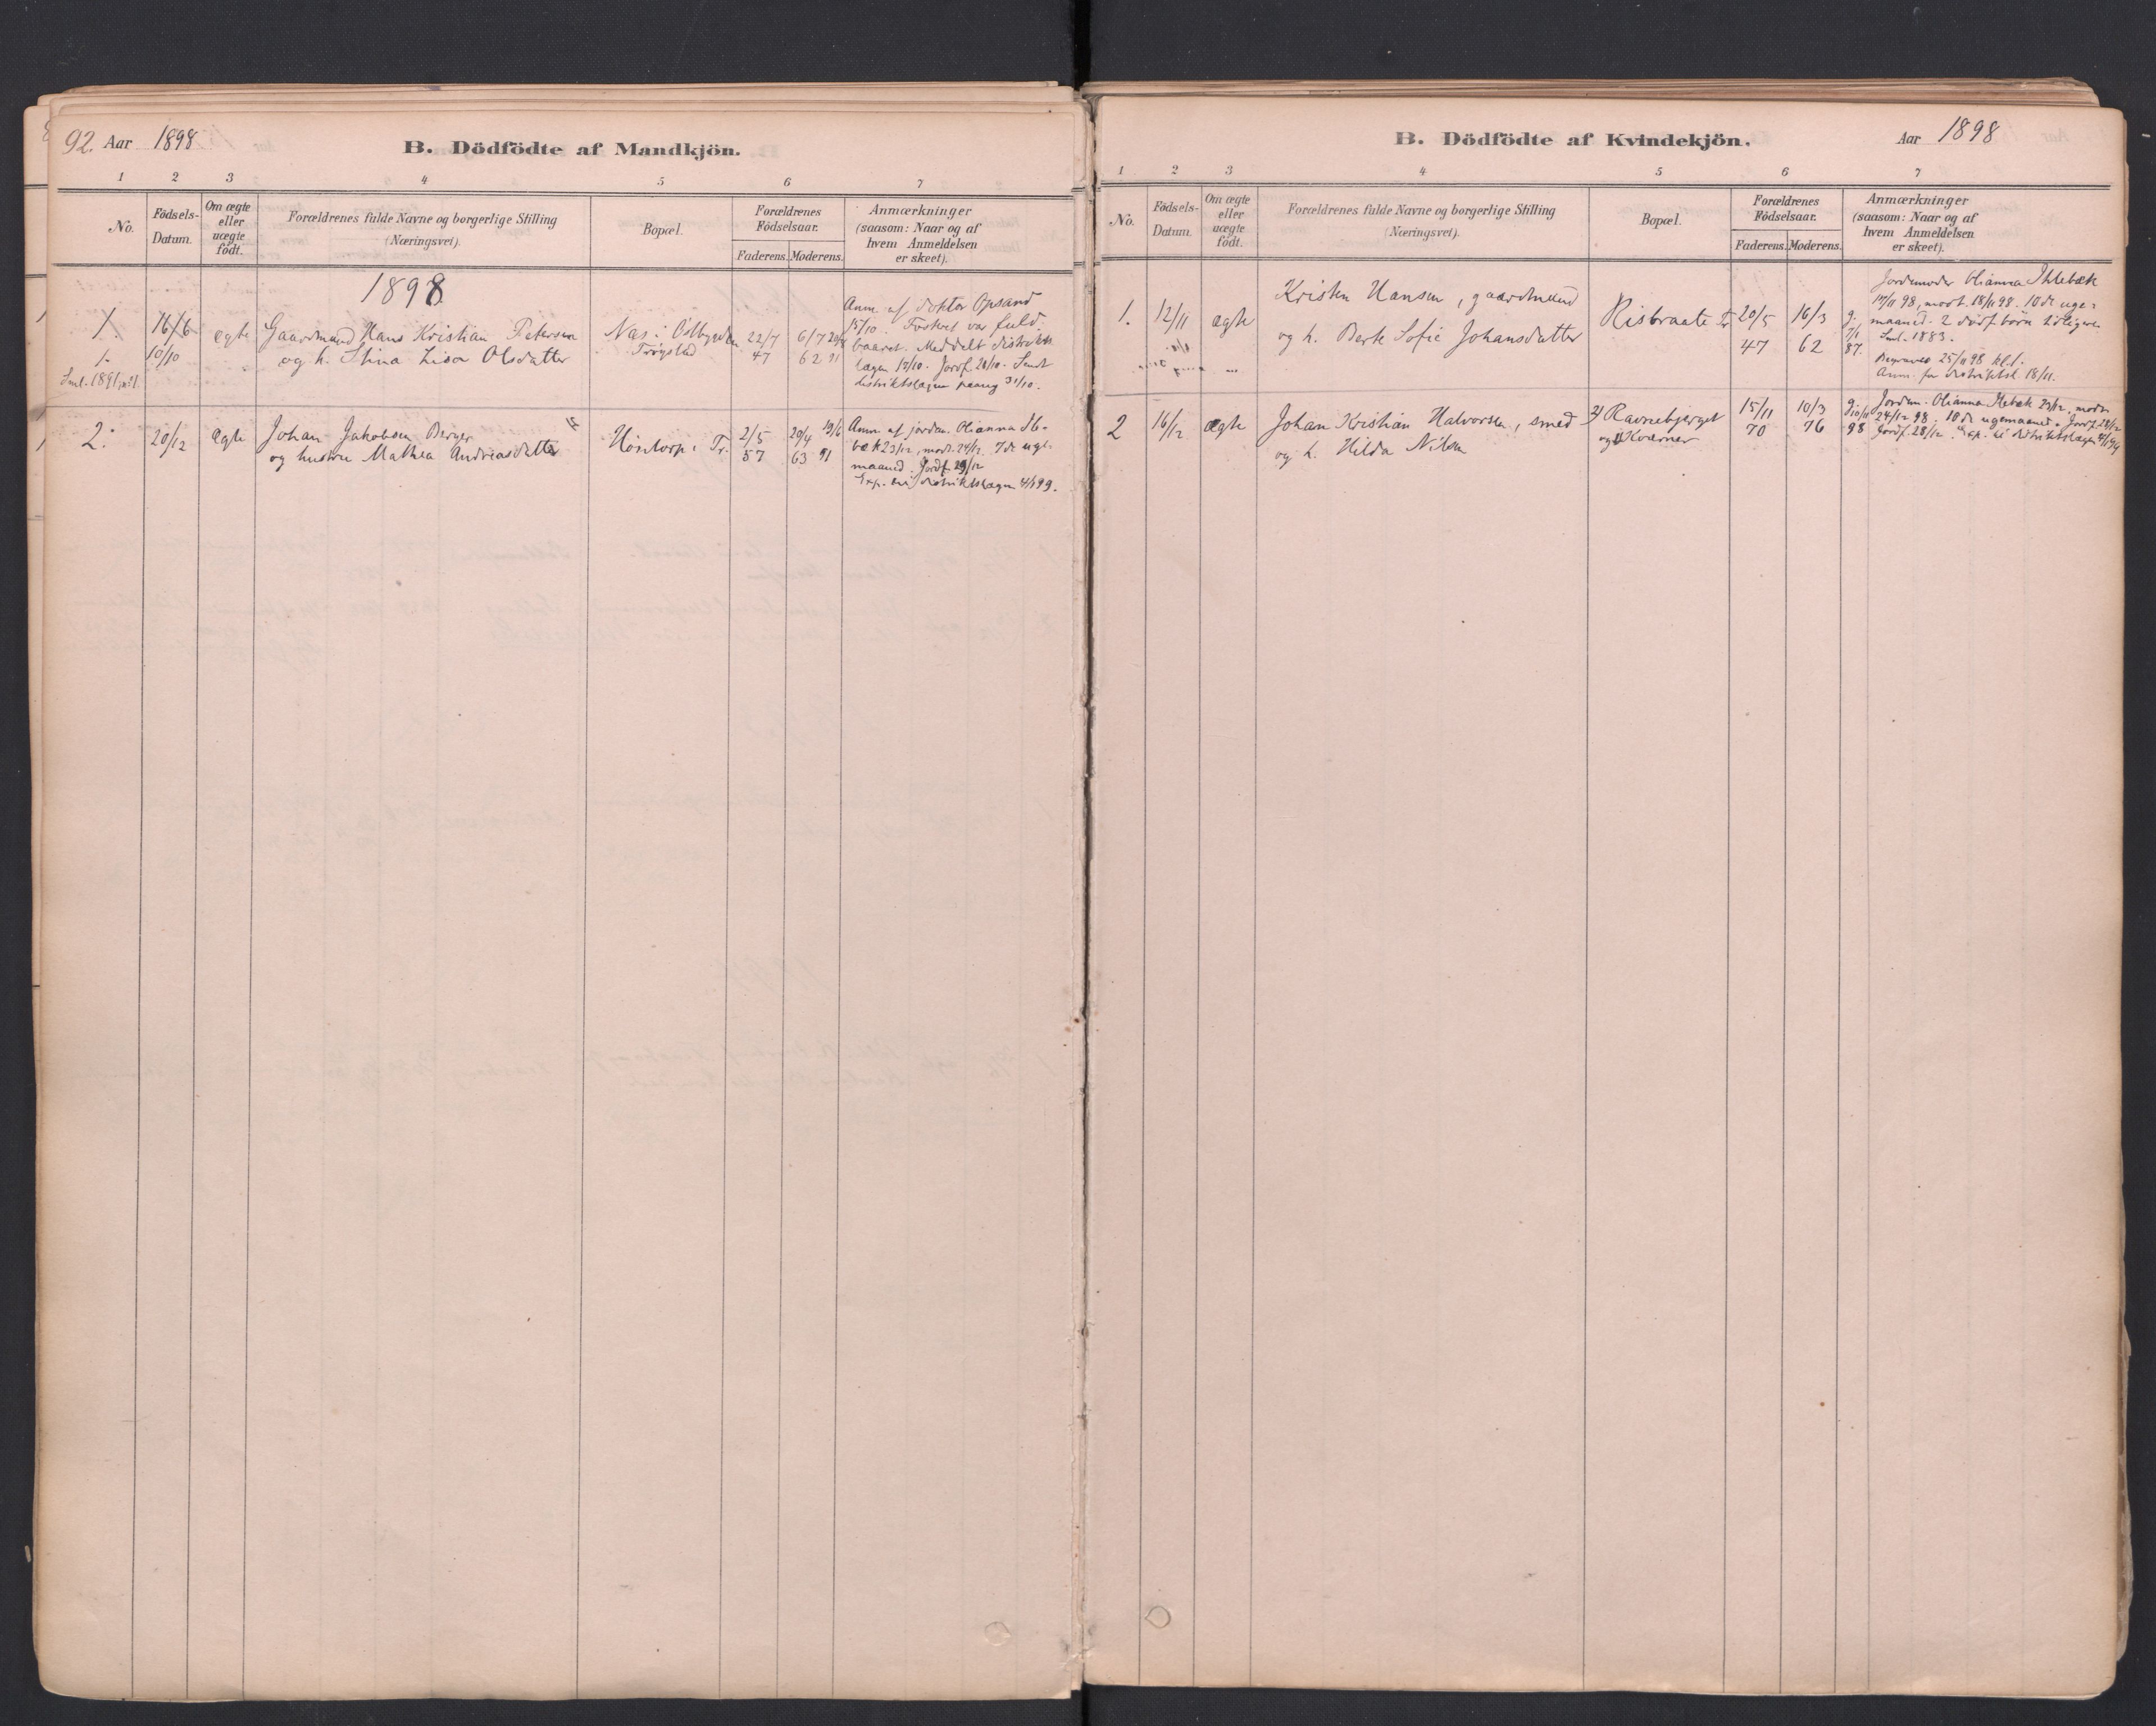 92. Aar 1898
B. Dödfödte af Mandkjön.
1 2 3 4 5 6 7
No.
Födsels-
Datum.
Om ægte
eller
uægte
födt.
Forældrenes fulde Navne og borgerlige Stilling
(Næringsvei).
Bopæl.
Forældrenes
Födselsaar.
Faderens. Moderens.
Anmærkninger
(saasom: Naar og af
hvem Anmeldelsen
er skeet).
1898
1.
Sml. 1891
10/10
ægte
Gaardmand Hans Kristian Petersen
og h. Stina Lisa Olsdatter
Næs i Östbygden
Trögstad
22/7
47
6/7
62 91
Anm. af doktor Opsand
15/10. Fosteret var fuld-
baaret. Meddelt distrikts-
lægen 15/10. Jordf. 20/10. Sendt
distriktslægen paany 31/10.
2.
20/12
ægte
Johan Jakobsen Berger
og hustru Mathea Andreasdatter
Höntorp i Tr.
2/5
57
20/4 19/6
63 91
Anm. af jordm. Olianna Ih-
bæk 23/12, modt. 24/12. 7de uge-
maaned. Jordf. 29/12
Exp. til distriktslægen 4/1 99.
B. Dödfödte af Kvindekjön.
Aar 1898
1 2 3 4 5 6 7
No.
Födsels-
Datum.
Om ægte
eller
uægte
födt.
Forældrenes fulde Navne og borgerlige Stilling
(Næringsvei).
Bopæl.
Forældrenes
Födselsaar.
Faderens. Moderens.
Anmærkninger
(saasom: Naar og af
hvem Anmeldelsen
er skeet).
1.
12/11
ægte
Kristen Hansen, gaardmand
og h. Berte Sofie Johansdatter
Risbraate Tr
20/5
47
16/3
62
g.
7/1
87.
Jordemoder Olianna Ihlebæk
17/11 98, modt. 18/11 98. 10de uge-
maaned. 2 dödf. börn tidligere
Sml. 1883.
Begravet 25/11 98 kl. 1.
Anm. for distriktsl. 18/11.
2
16/12
ægte
Johan Kristian Halvorsen, smed
og h. Hilda Nilsen
Ravnebjerget
og Kværner
15/11
70
10/3
76
g.
98
Jordm. Olianna Ilebæk 23/12, modt.
24/12 98. 10de ugemaaned. Jordf. 28/12
Jordf. 28/12. Exp. til distriktslægen 4/1 99